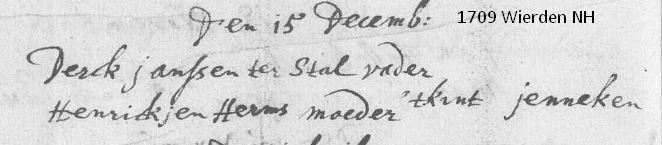 Den 15 Decemb: 1709 Wierden NH
Derck janssen ter Stal vader
Henrickjen Herms moeder tkint jenneken